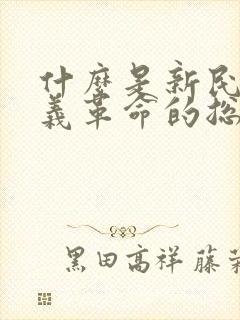 什麼是新民
義革命的总
黑田高祥 藤